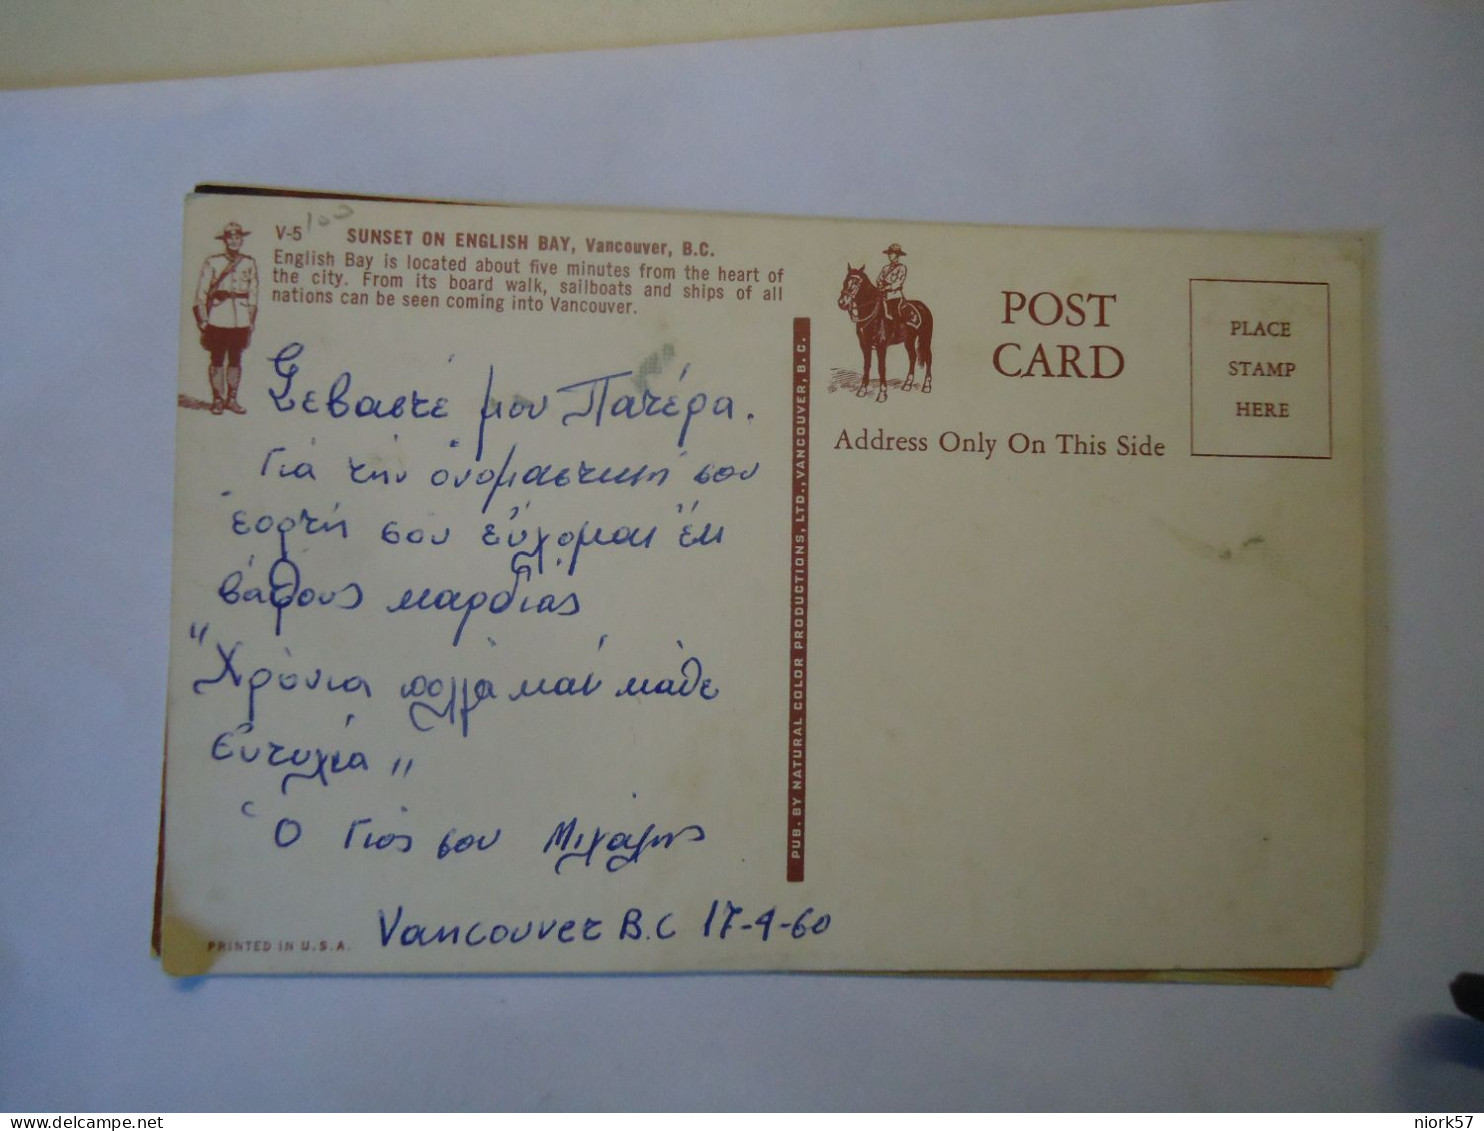 V-5 100 SUNSET ON ENGLISH BAY, Vancouver, B.C.
English Bay is located about five minutes from the heart of
the city. From its board walk, sailboats and ships of all
nations can be seen coming into Vancouver.
Σεβαστέ μου Πατέρα.
Γιά την ὀνομαστική σου
ἑορτή σου εὔχομαι ἐκ
βάθους καρδιας
"Χρόνια πολλά και κάθε
Ευτυχία"
Ὁ Γιός σου Μιχάλης
Vancouver B.C 17-9-60
PRINTED IN U.S.A.
PUB. BY NATURAL COLOR PRODUCTIONS, LTD., VANCOUVER, B. C.
POST
CARD
Address Only On This Side
PLACE
STAMP
HERE
niork57